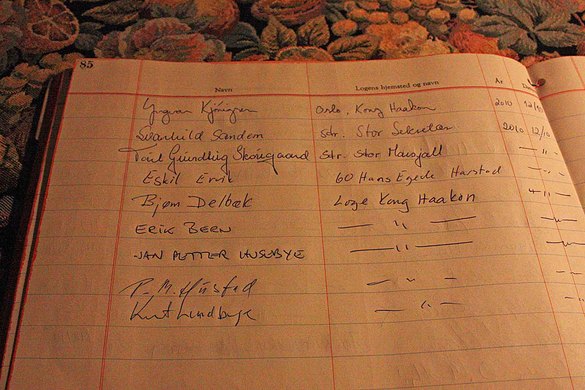 85
Navn Logens hjemsted og navn År
Oslo, Kong Haakon 2010 12/10
Svanhild Sandem Str. Stor Sekretær 2010 12/10
Str. Stor Marsjall — " —
Eskil Ervik 60 Hans Egede Harstad — " —
Bjørn Delbæk Loge Kong Haakon — " —
ERIK BEEN — " —
JAN PETTER HUSEBYE — " —
P. M. Hustad — " —
Kurt Lindbæk — " —